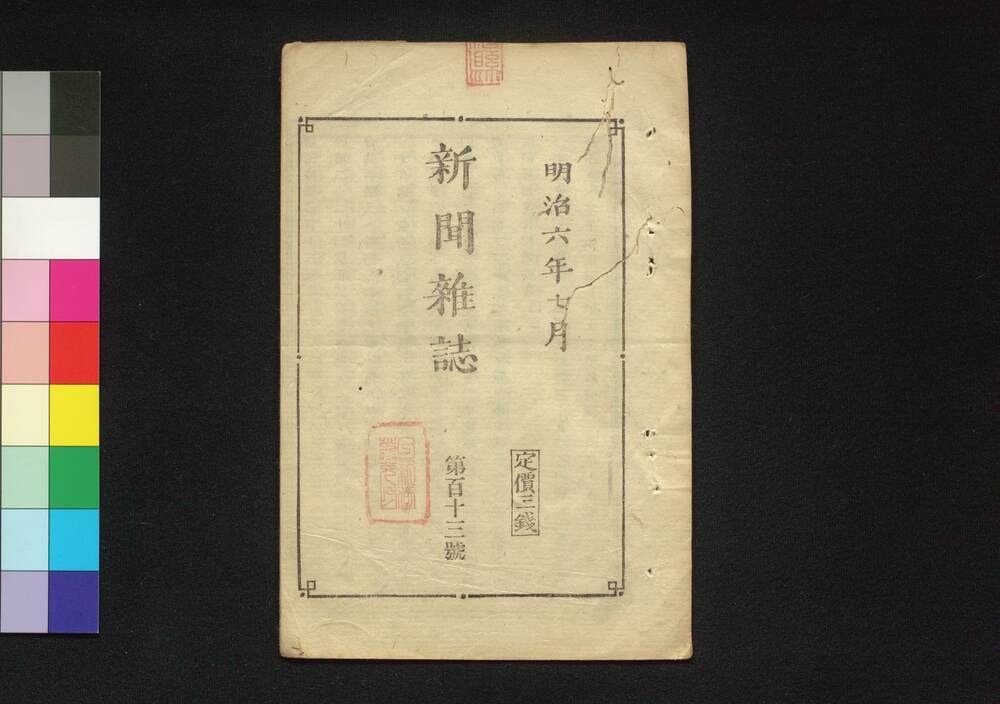 明治六年七月
新聞雜誌
定價三錢
第百十三號